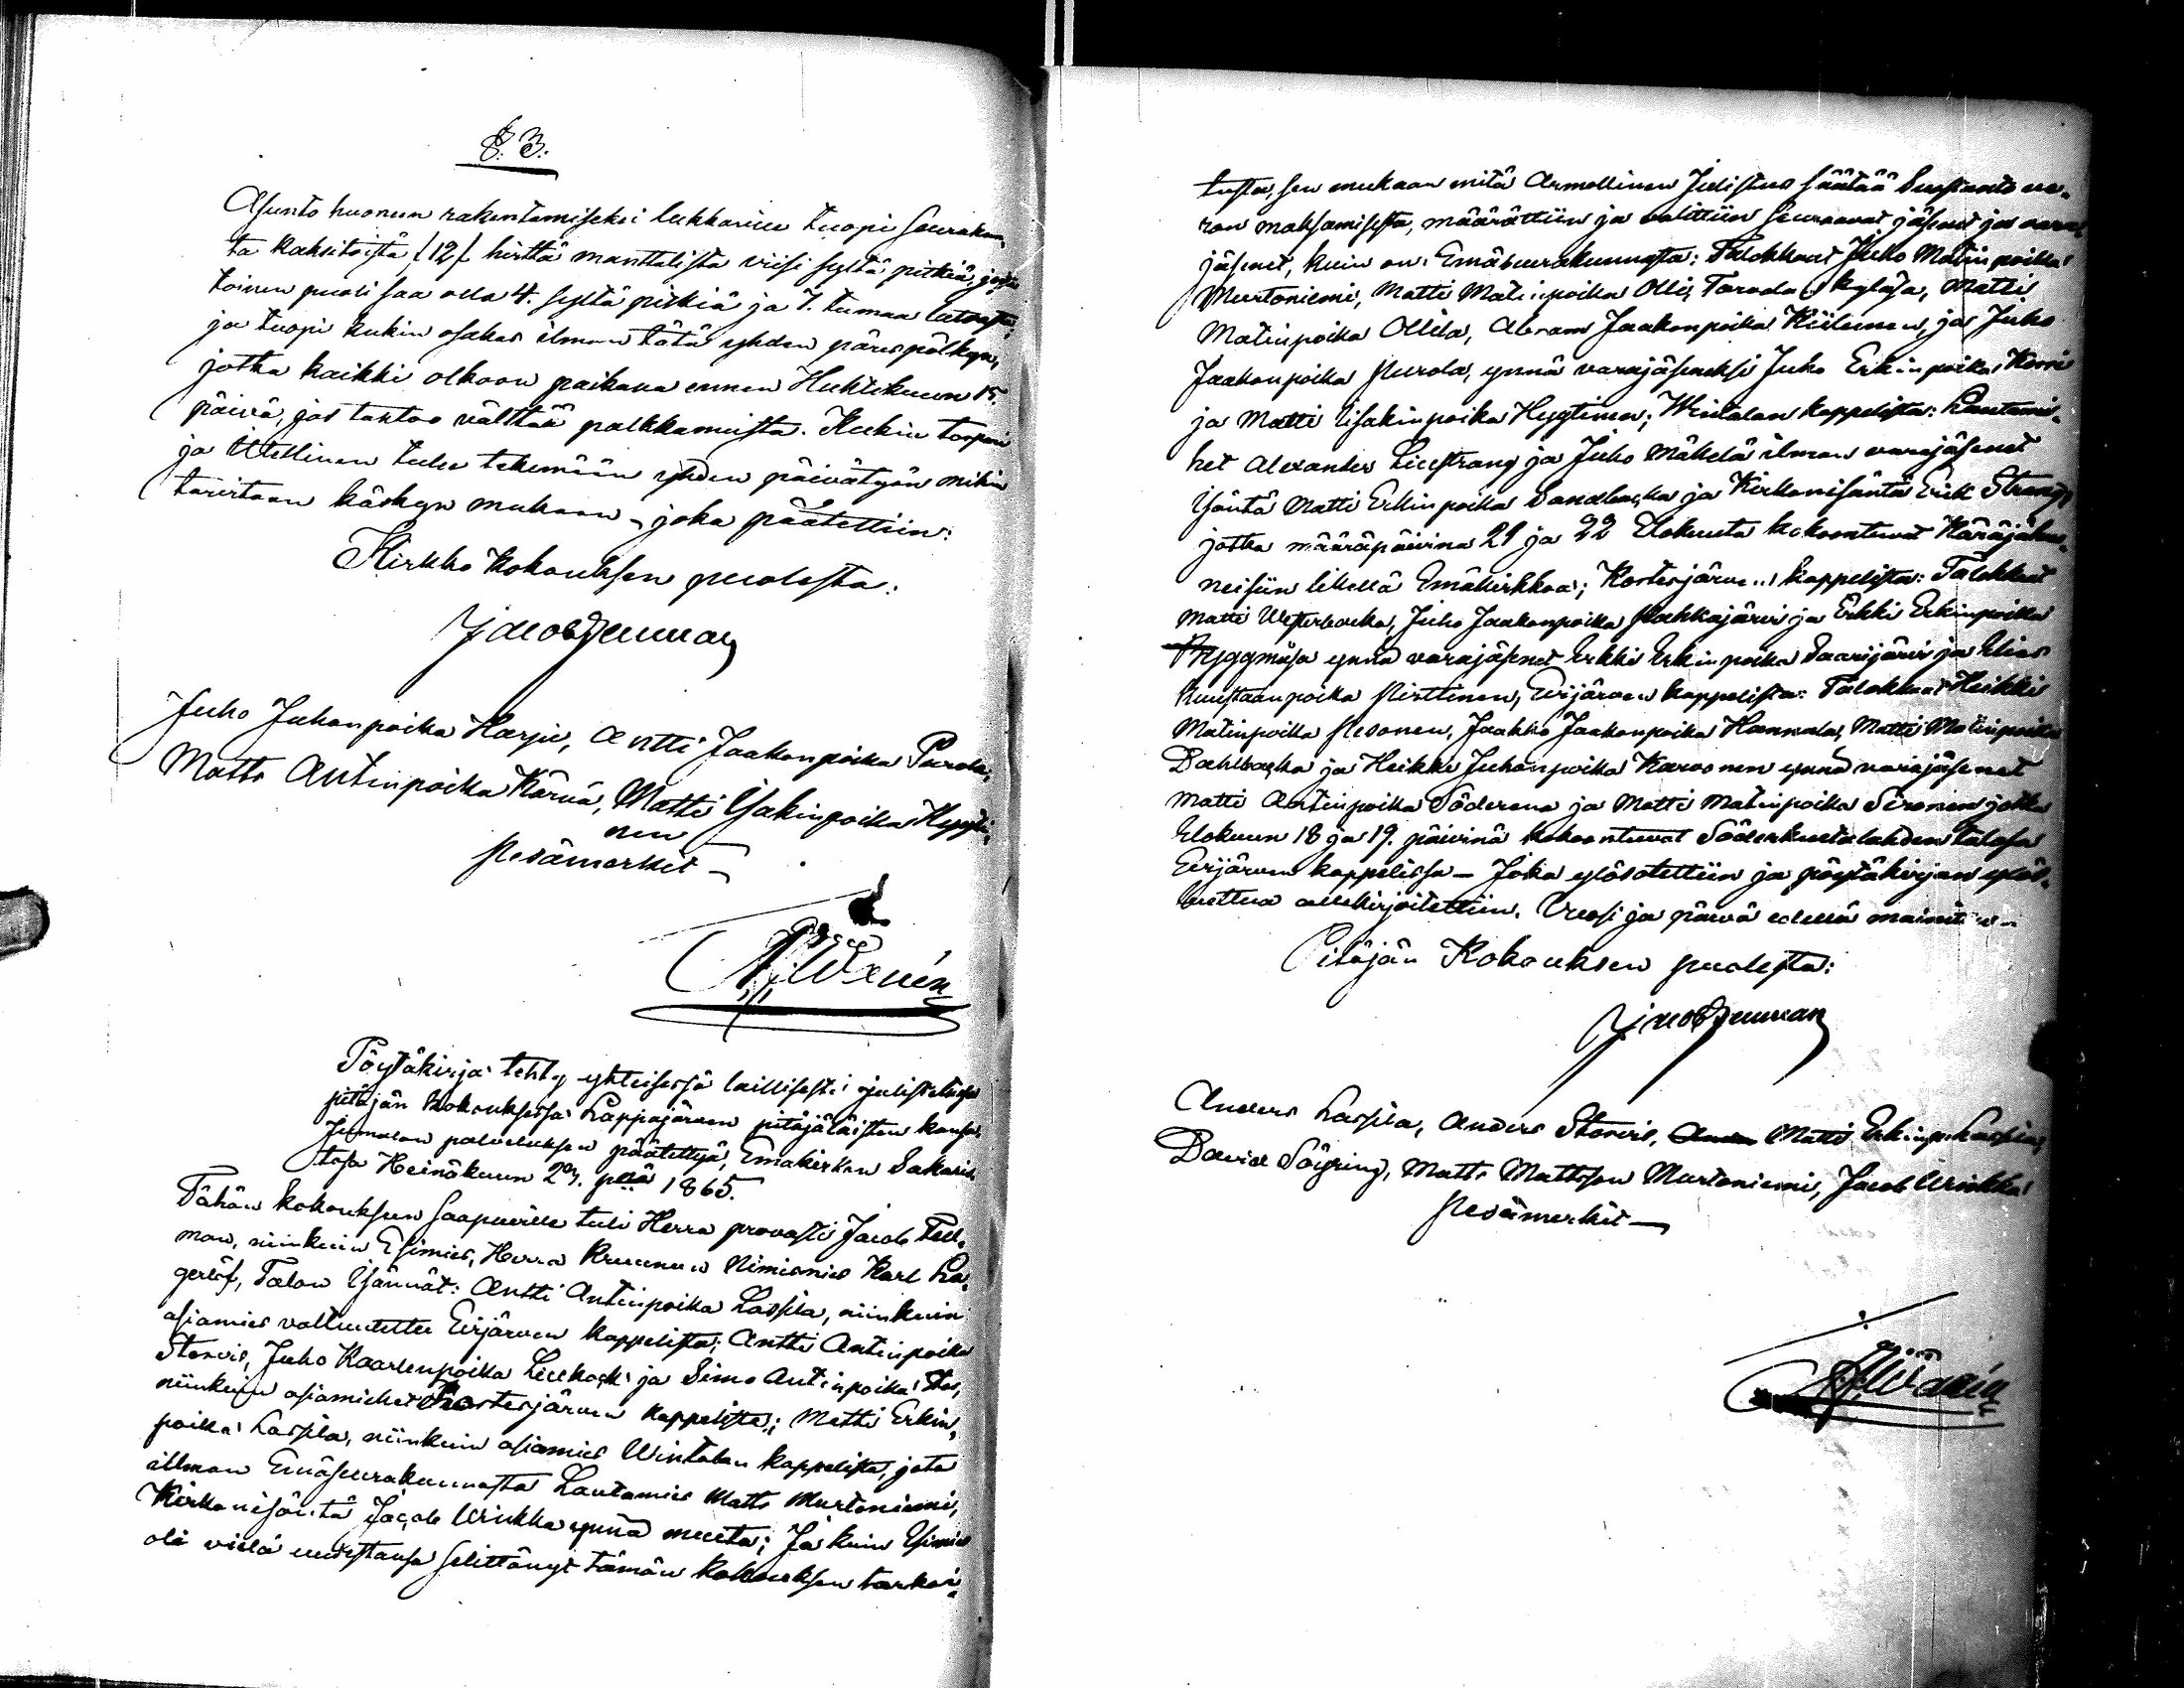 §. 3.
Asunto huoneen rakentamiseksi lukkarille tuopi seurakun¬
ta kaksitoista /12/ hirttä manttalista viisi syltä pitkiä, josta
toinen puoli saa olla 4. syltä pitkiä ja 7. tumaa latvasta;
ja tuopi kukin osakas ilman tätä yhden pärepölkyn,
jotka kaikki olkoon paikana ennen Huhtikuun 15.
päivä, jos tahtoo välttää palkkamista. Kukin torpari
ja Itellinen tulee tekemään yhden päivätyön mihin
tarvitaan käskyn mukaan, joka päätettiin:
Kirkko Kokouksen puolesta:
Jacob Fellman
Juho Juhonpoika Harju, Antti Jaakonpoika Purola,
Matts Antinpoika Kärnä, Matti Isakinpoika Hyyti¬
nen
Puumerkit
Pöytäkirja tehty yhteisessä laillisesti julistetussa
pitäjän kokouksessa Lappajärven pitäjäläisten kansa,
Jumalan palveluksen päätettyä, Emäkirkon Sakaris¬
tosa Heinäkuun 23. pnä 1865.
Tähän kokouksen saapuville tuli Herra provasti Jacob Fell¬
man, niinkuin Esimies, Herra Kruunun Nimismies Karl La¬
gerlöf, Talon Isännät: Antti Antinpoika Lassila, niinkuin
asiamies valtuutettu Evijärven kappelista; Antti Antinpoika
Storvis, Juho Kaarlenpoika Lillback ja Simo Antinpoika
niinkuin asiamiehet Kortesjärven kappelista; Matti Erkin¬
poika Lassila, niinkuin asiamies Wintalan kappelista, jota
ilman Emäseurakunnasta Lautamies Matts Murtoniemi,
Kirkonisäntä Jacob Wirkka ynnä muita; Ja kuin Esimies
oli vielä uudestansa selittänyt tämän kokouksen tarkoi¬
tusta, sen mukaan mitä Armollinen Julistus säätää Suostunto ve¬
ron maksamisesta, määrättiin ja valittiin seuraavat jäsenet ja vara¬
jäsenet, kuin on: Emäseurakunnasta: Talokkaat Juho Matinpoika
Murtoniemi, Matti Matinpoika Olli, kylässä, Matti
Matinpoika Ollila, Abram Jaakonpoika Kiilunen, ja Juho
Jaakonpoika Purola, ynnä varajäseneksi Juho Erkinpoika
ja Matti Iisakinpoika Hyytinen; Wintalan kappelista: Lautami¬
het Alexander Lillstrang ja Juho Mäkelä ilman varajäsenet
Isäntä Matti Erkinpoika Sandbacka ja Kirkonisäntä Erik Strang,
jotka määräpäivinä 21 ja 22 Elokuuta kokoontuvat Käräjähuo¬
neisiin likellä Emäkirkkoa; Kortesjärven kappelista: Talokkaat
Matti Westerbacka, Juho Jaakonpoika Pahkajärvi ja Erkki Erkinpoika
Ryggmäsa ynnä varajäsenet Erkki Erkinpoika Saarijärvi ja Elias
Kustaanpoika Pirttinen, Evijärven kappelista: Talokkaat Heikki
Matinpoika Pesonen, Jaakko Jaakonpoika Hannala, Matti Matinpoika
Dahlbacka ja Heikki Juhonpoika Karvonen ynnä varajäsenet
Matti Antinpoika Söderena ja Matti Matinpoika Sironen jotka
Elokuun 18 ja 19. päivinä kokoontuvat Söderkultalahden talossa
Evijärven kappelissa – Joka ylösotettiin ja pöytäkirjan ylös¬
luettua allekirjoitettiin. Vuosi ja päivä edellä mainittu.
Pitäjän Kokouksen puolesta:
Jacob Fellman
Anders Lassila, Anders Storvis, Matti Erkinp. Lassila,
David Söyring, Matts Mattsson Murtoniemi, Jacob Wirkka
Puumerkit